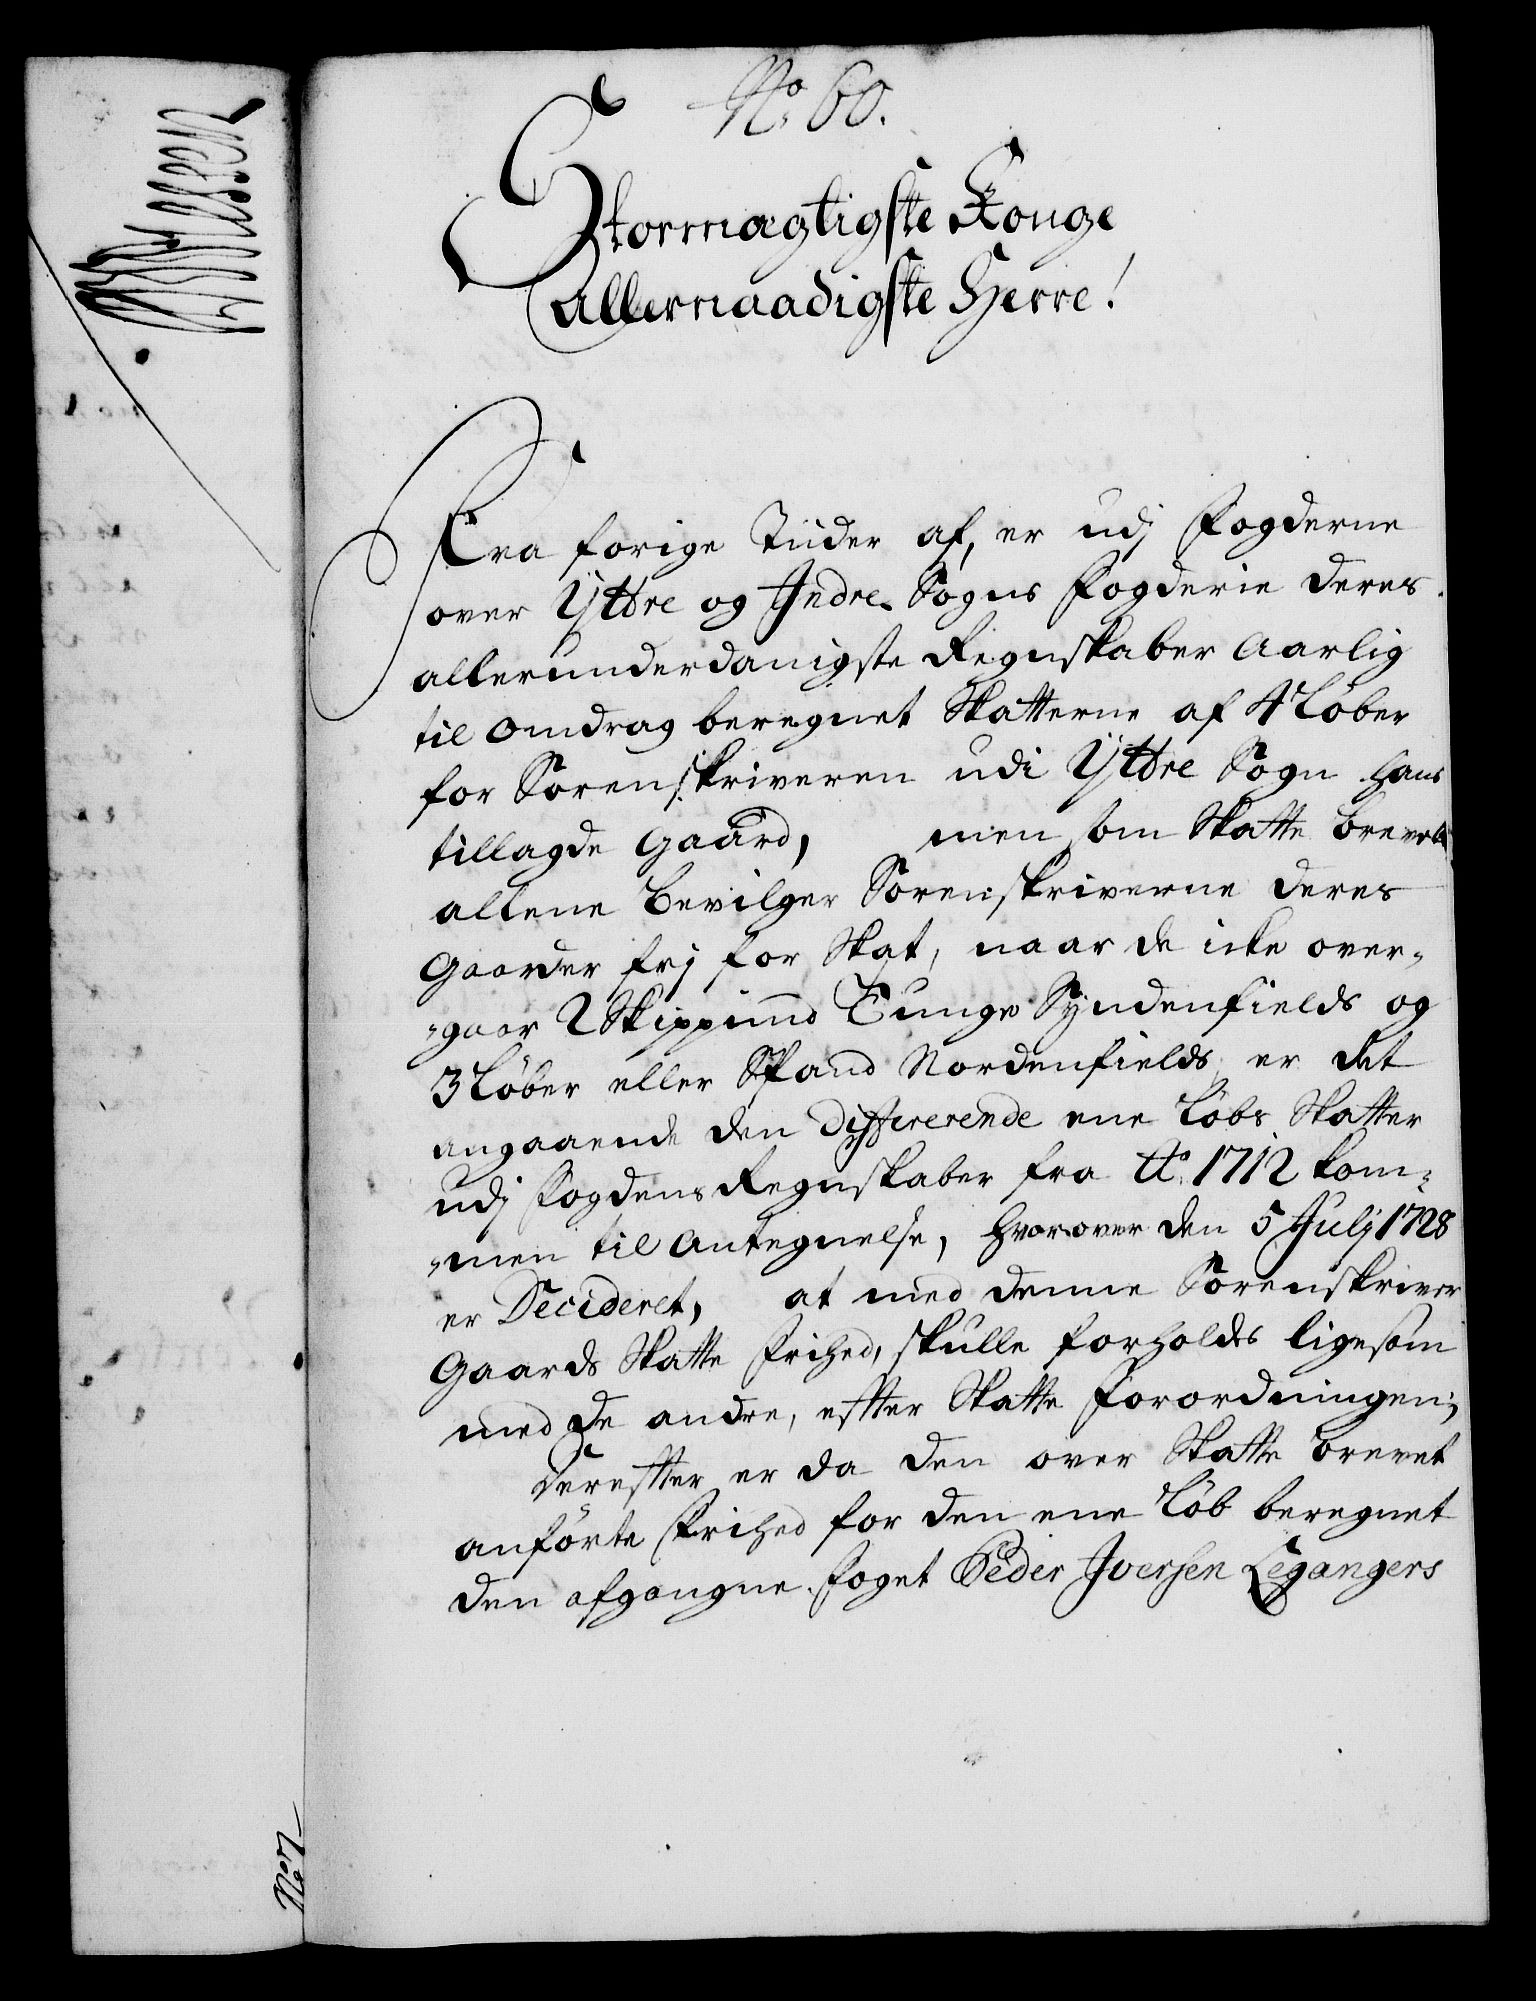 No. 60.
Stormægtigste Konge
Allernaadigste Herre!
Fra forige Tiider af, er udj Fogderne
over Yttre og Indre Sogns Fogderie deres
allerunderdanigste Regnskaber Aarlig
til omdrag beregnet Skatterne af 4 Löber
for Sorenskriveren udi Yttre Sogn hans
tillagde Gaard, men som Skatte brevene
allene bevilger Sorenskriverne deres
Gaarder frj for Skat, naar de icke over-
-gaar 2 Skippund Tunge Syndenfields og
3 Löber eller Spand Nordenfields, er det
angaaende den differerende ene Löbs Skatter
udj Fogdens Regnskaber fra Ao. 1712 kom-
-men til Antegnelse, hvorover den 5 Julj 1728
er Decideret, at med denne Sorenskriver
Gaards Skatte Frihed, skulle forholdes ligesom
med de andre, effter Skatte Forordningen;
Dereffter er da den over Skatte brevet
anförte Frihed for den ene Löb beregnet
den afgangne Foget Peder Iversen Legangers